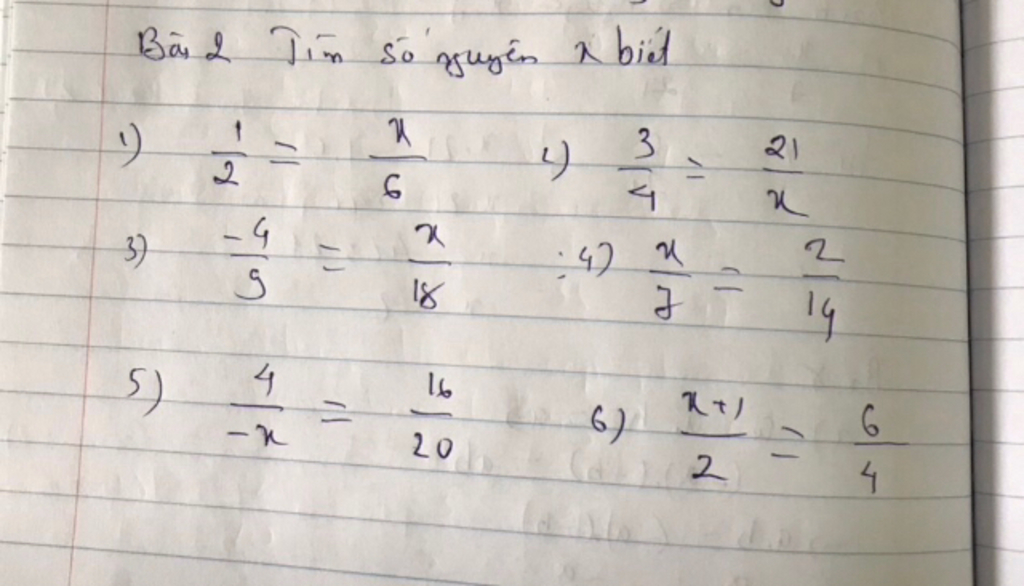 Bài 2 Tìm số nguyên x biết
1) 1/2 = x/6 2) 3/4 = 21/x
3) -4/9 = x/18 4) x/7 = 2/14
5) 4/-x = 16/20 6) x+1/2 = 6/4